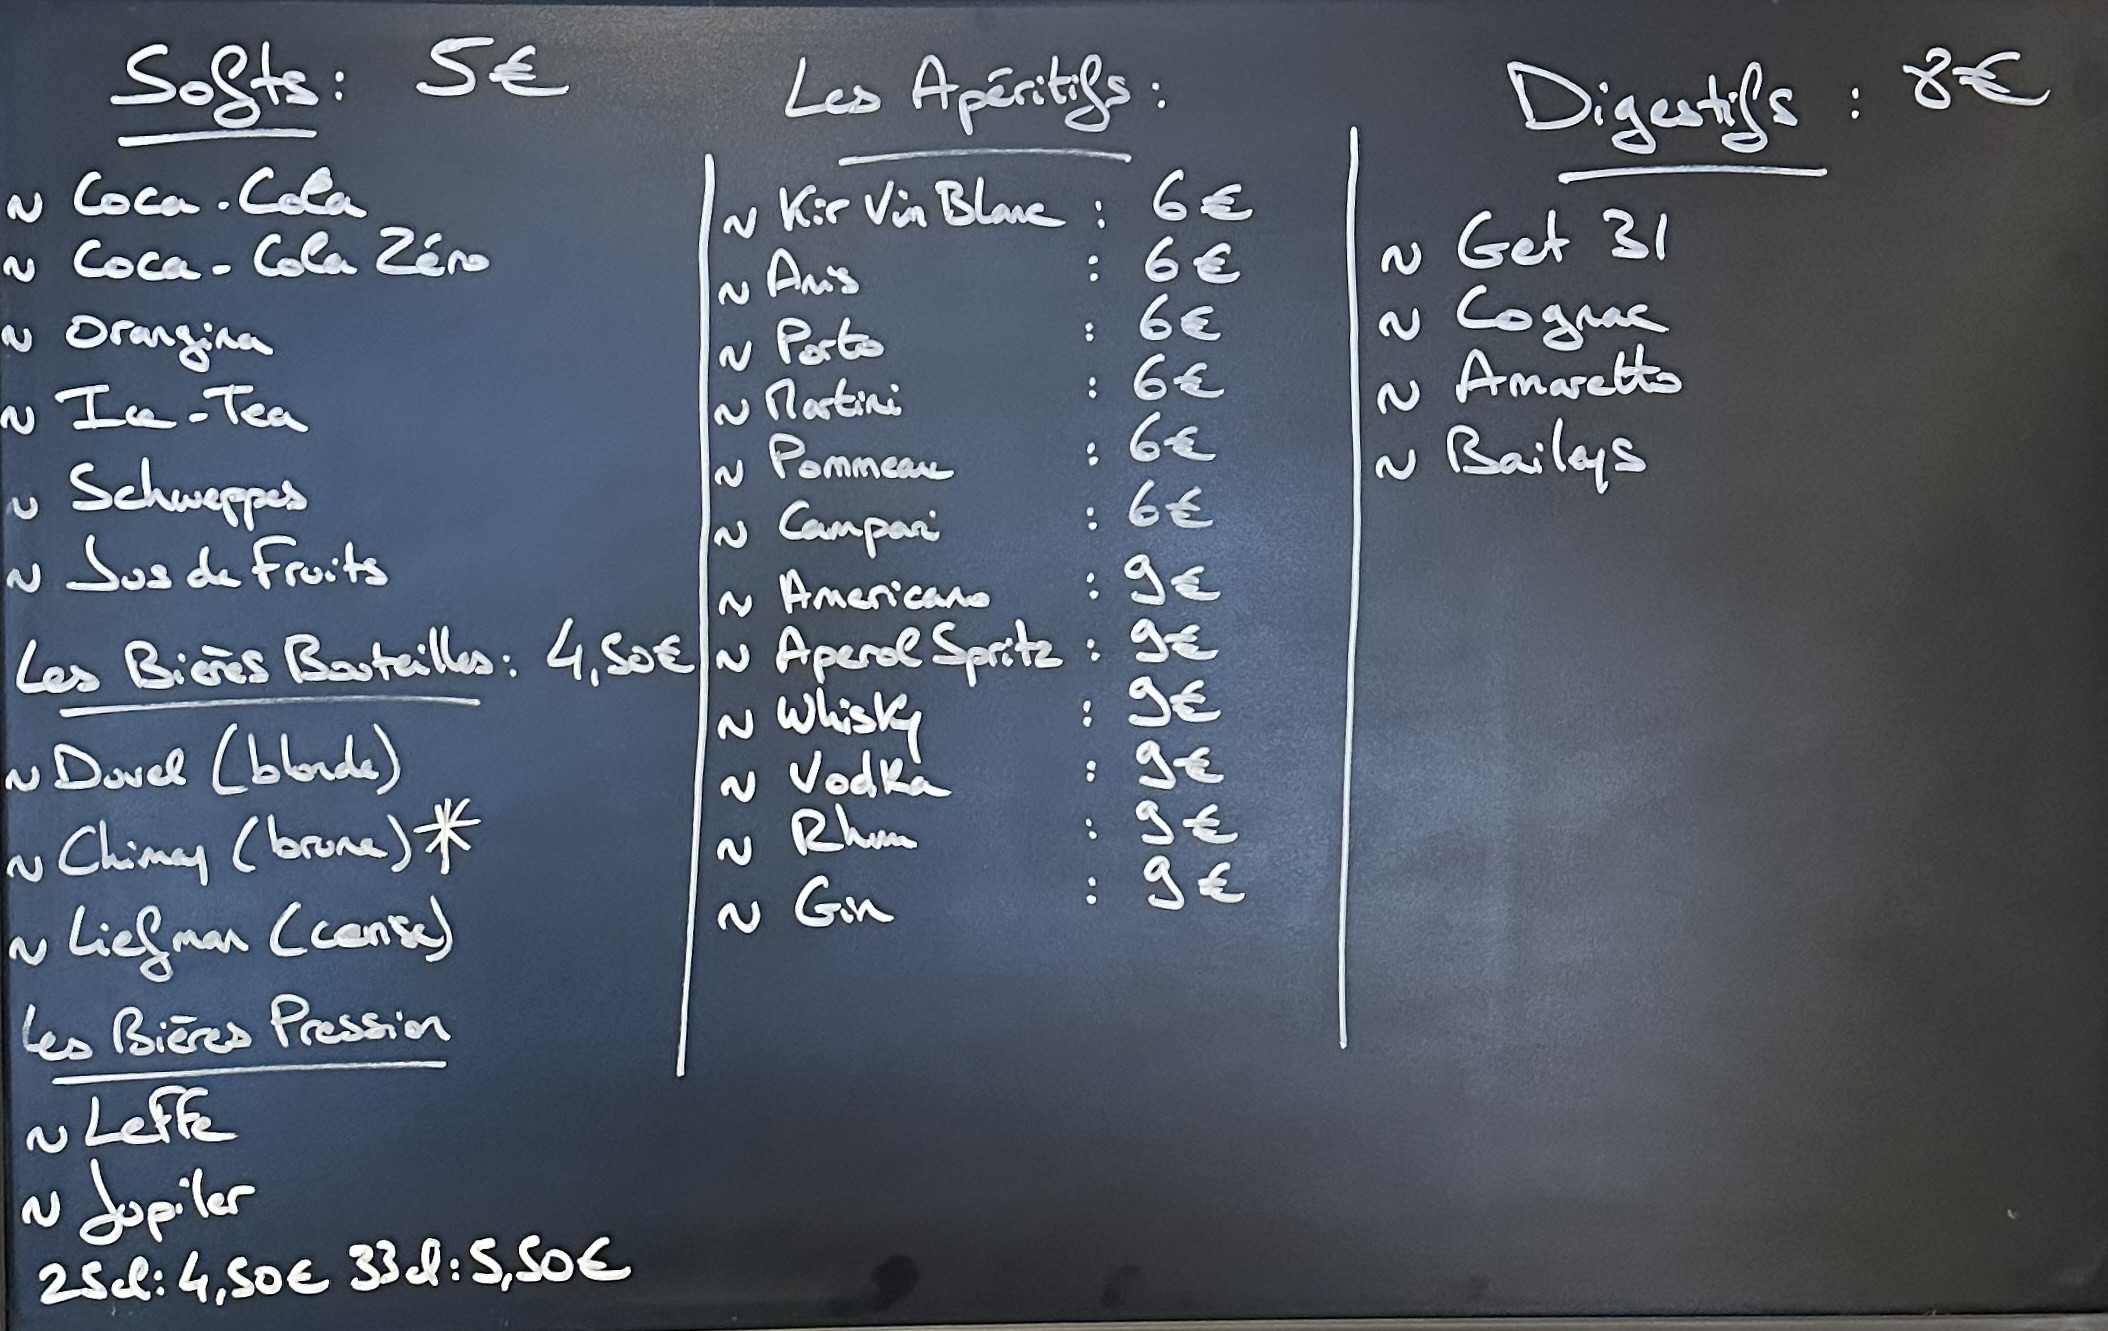 Softs : 5€
~ Coca-Cola
~ Coca-Cola Zéro
~ Orangina
~ Ice-Tea
~ Schweppes
~ Jus de Fruits
Les Bières Bouteilles : 4,50€
~ Duvel (blonde)
~ Chimay (brune) *
~ Liefman (cerise)
Les Bières Pression
~ Leffe
~ Jupiler
25cl : 4,50€ 33cl : 5,50€
Les Apéritifs :
~ Kir Vin Blanc : 6€
~ Anis : 6€
~ Porto : 6€
~ Martini : 6€
~ Pommeau : 6€
~ Campari : 6€
~ Americano : 9€
~ Aperol Spritz : 9€
~ Whisky : 9€
~ Vodka : 9€
~ Rhum : 9€
~ Gin : 9€
Digestifs : 8€
~ Get 31
~ Cognac
~ Amaretto
~ Baileys